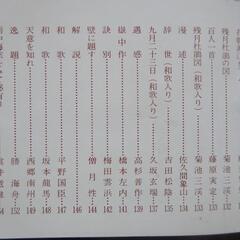 残月杜鵑の図 菊池三渓 132
百人一首 藤原実定 133
残月杜鵑図（和歌入り） 菊池三渓 134
漫述 佐久間象山 135
辞世（和歌入り） 吉田松陰 137
九月二十三日（和歌入り） 久坂玄瑞 139
遇感 高杉善作 140
獄中作 橋本左内 141
訣別 梅田雲浜 142
壁に題す 僧月性 144
解説 146
和歌 平野国臣 147
和歌 坂本龍馬 148
天意を知れ 西郷南州 149
逸題 勝海舟 152
154